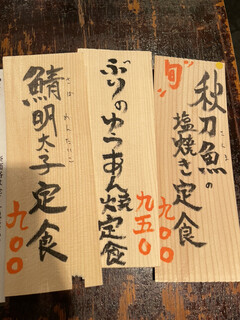 旬
秋刀魚の
塩焼き定食
九〇〇
ぶりのゆうあん焼定食
九五〇
鯖明太子定食
九〇〇